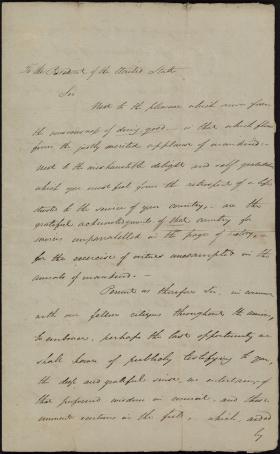 To the President of the United States
Sir
Next to the pleasure which arises from
the consciousness of doing good — is that which flows
from the justly merited applause of mankind.—
Next to the inexhaustible delight and self gratulation
which you must feel from the retrospect of a life
devoted to the service of your country, — are the
grateful acknowledgments of that country for
services unparrallelled in the page of history, —
for the exercise of virtues unexampled in the
annals of mankind. —
Permit us therefore Sir, in common
with our fellow citizens throughout the union,
to embrace, perhaps the last opportunity we
shall have of publickly testifying to you,
the deep and grateful sense, we entertain, of
that profound wisdom in council, and those
eminent virtues in the field, which, aided
by